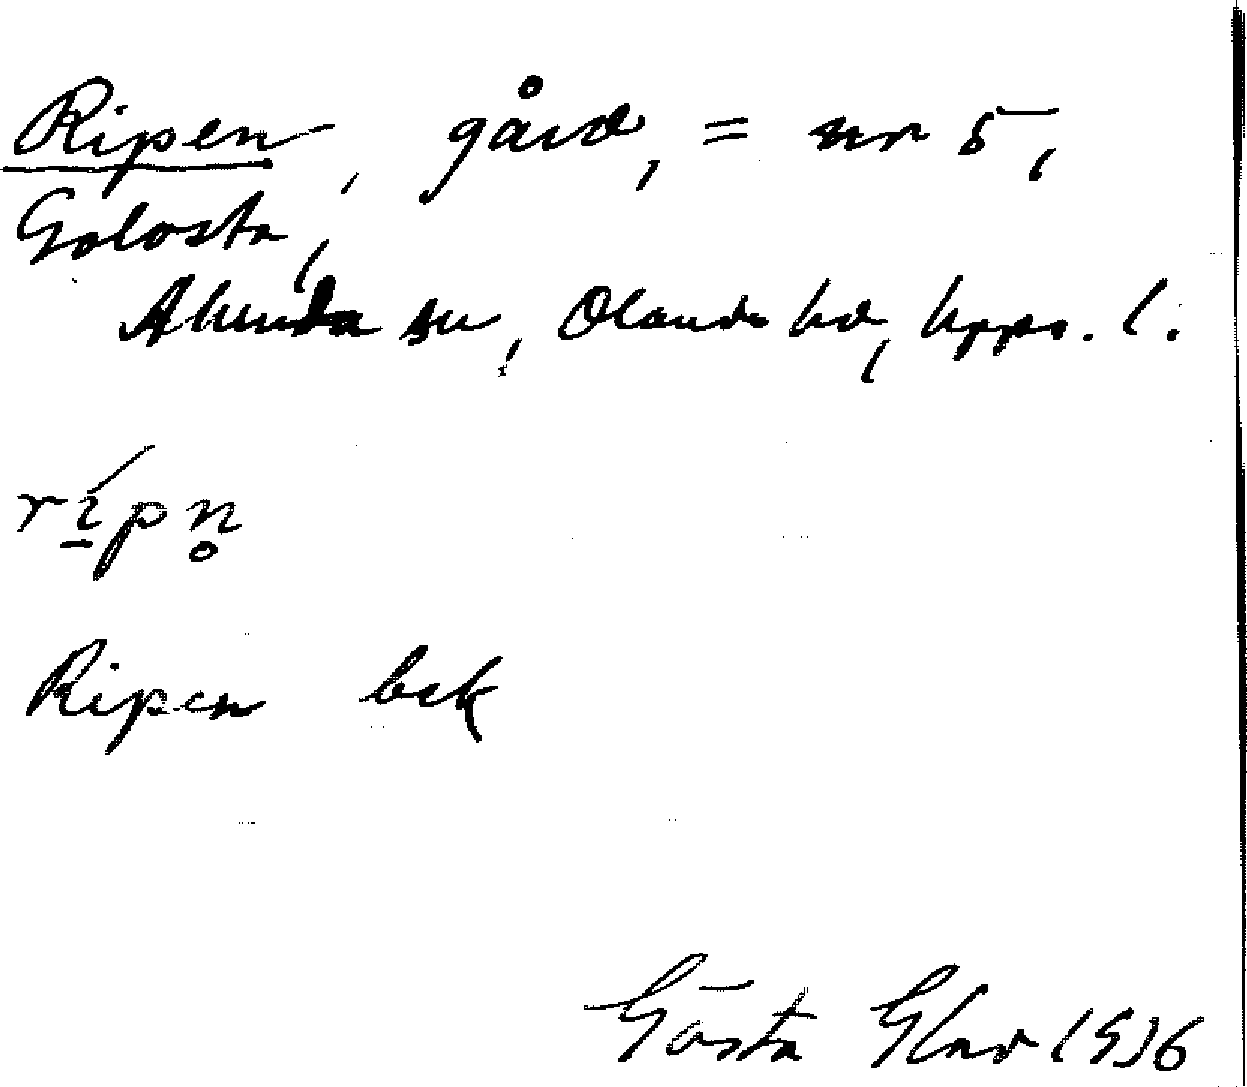 Ripen, gård, = nr 5,
Golosta,
Alunda sn, Olands hd, Upps. l.
rípn̥
Ripen bek
Gösta Glad 1936